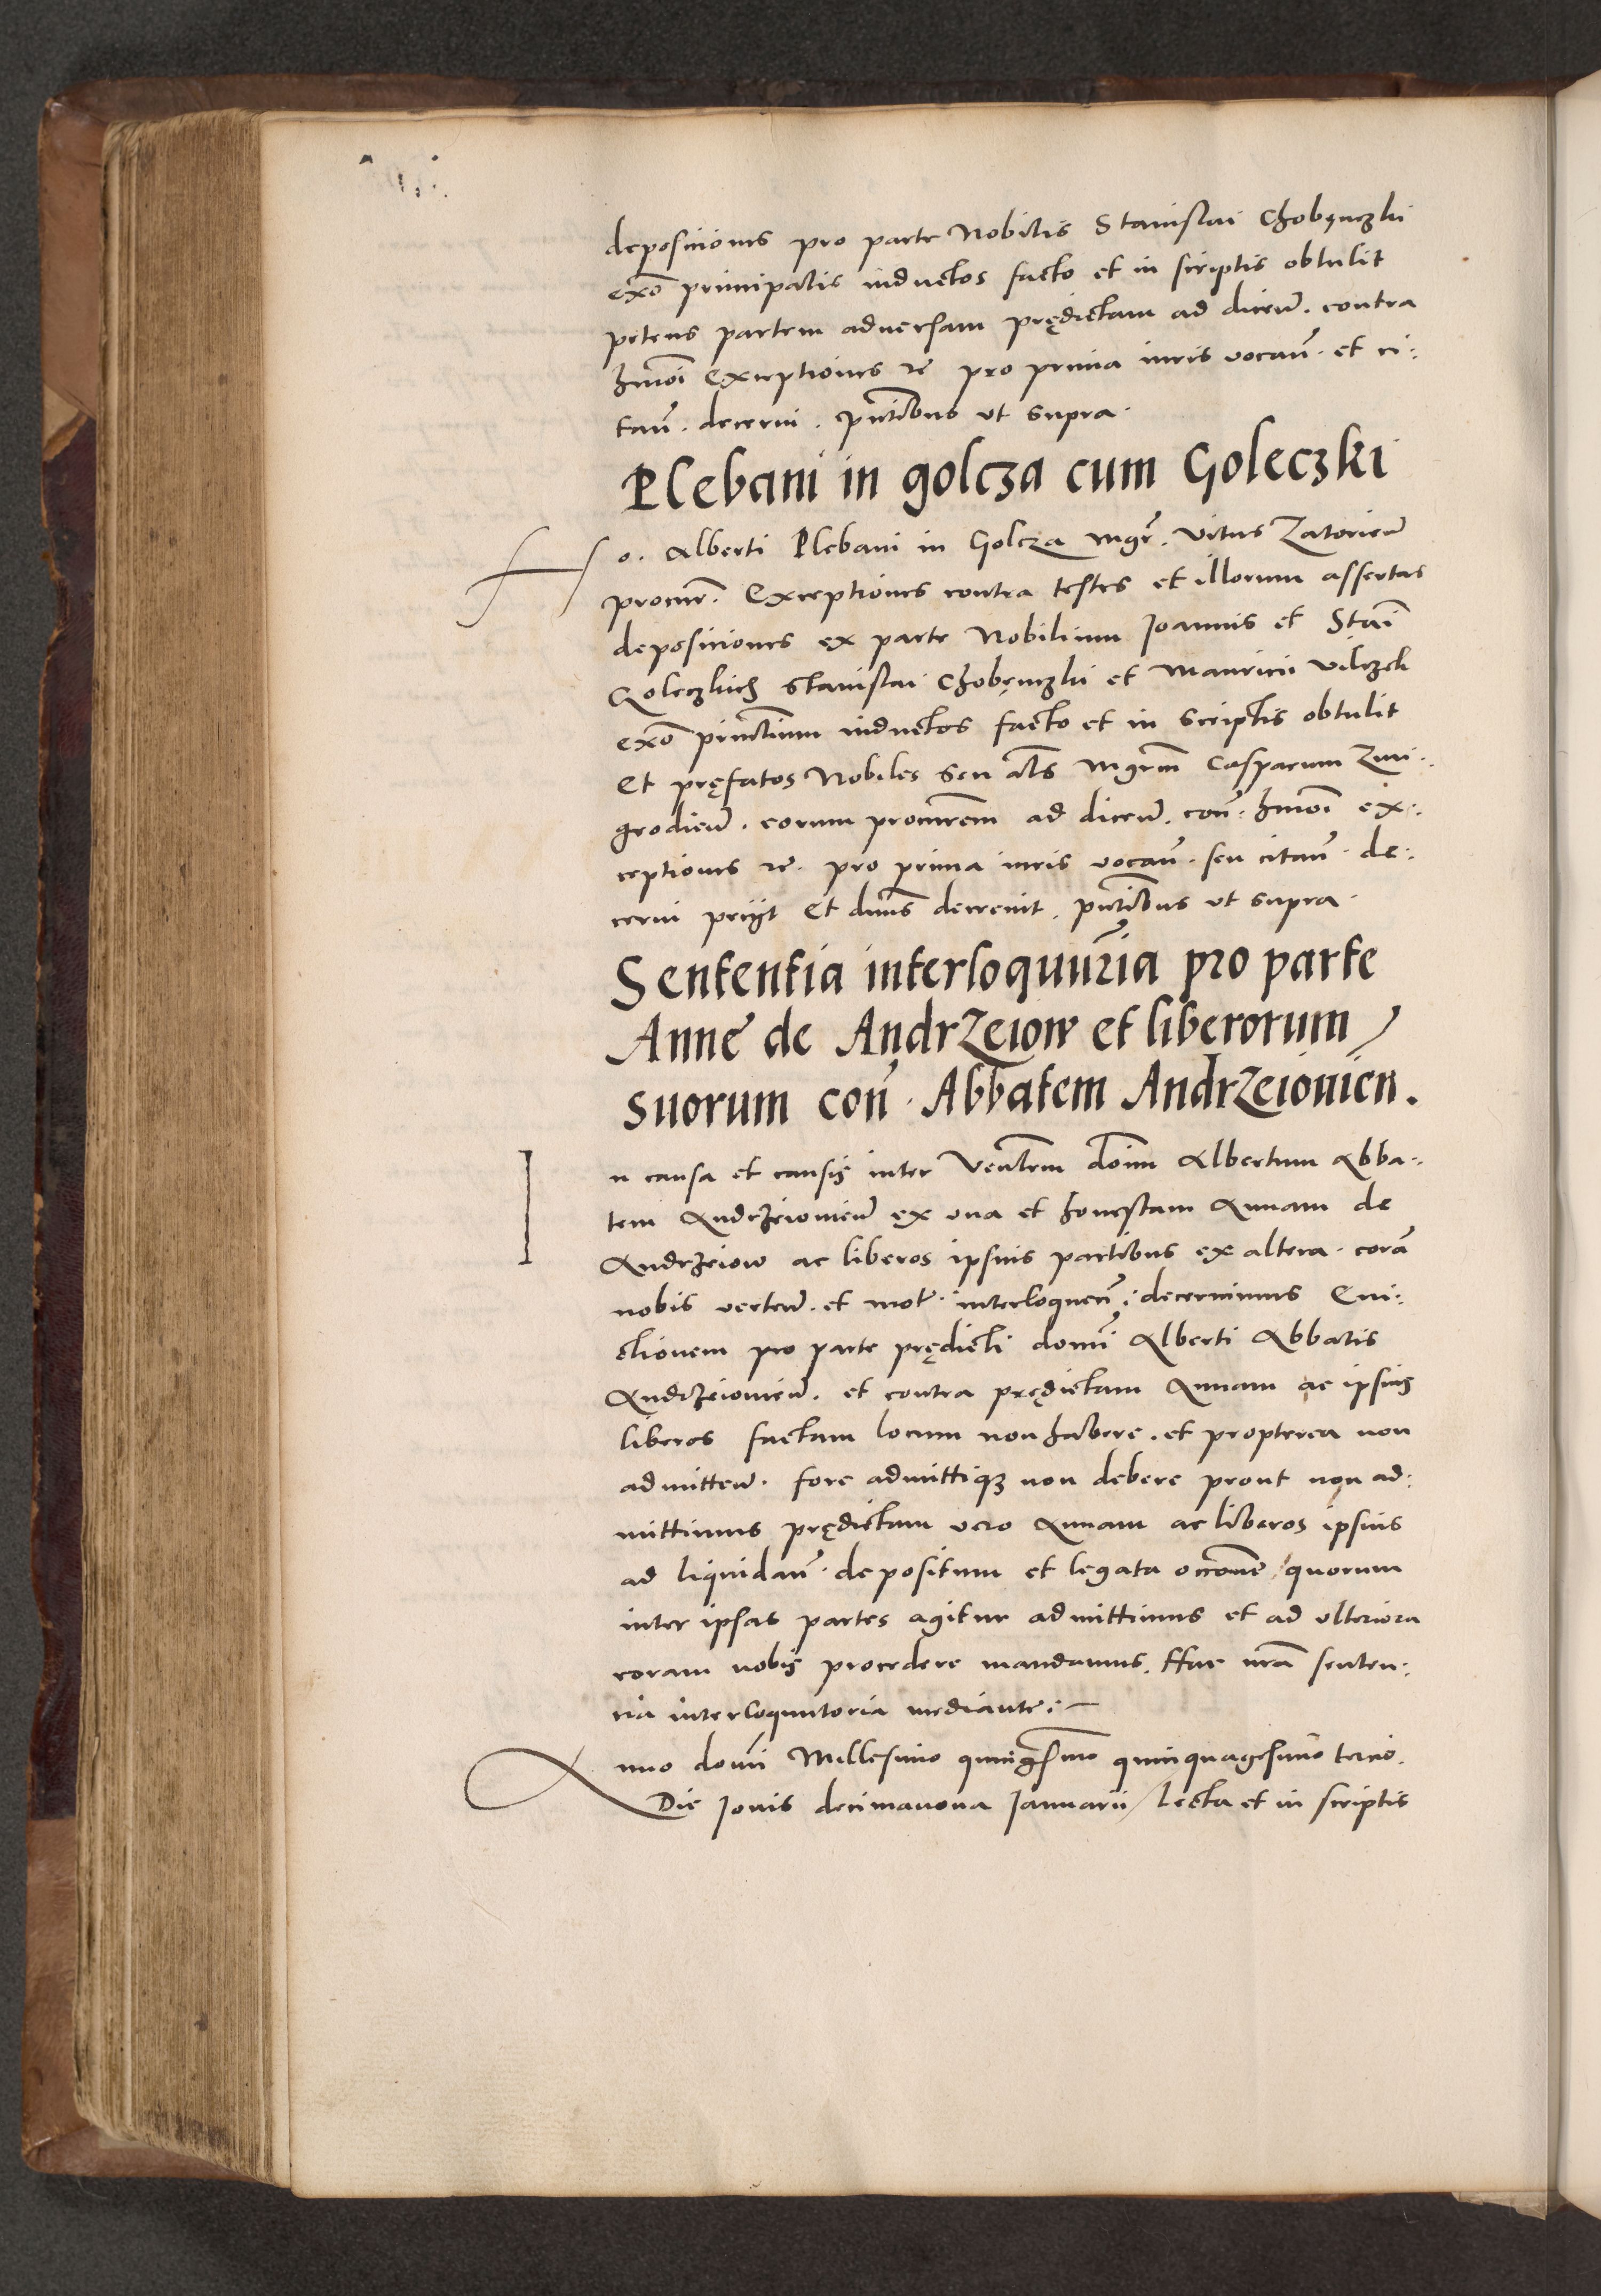 deposiciones pro parte Nobilis Stanislai Chobęnczki
exõ principalis inductos facto et in scriptis obtulit
petens partem adversam prędictam ad diceñ. contra
hmõi Exceptiones rẽ pro prima iuris vocañ. et ci:
tañ. decerni. pñtibus ut supra.
Plebani in golcza cum Goleczki
Ho. Alberti Plebani in Golcza mgr̃. Vitus Zatorieñ
procur̃. Exceptiones contra testes et illorum assertas
deposiciones ex parte Nobilium Joannis et Stañi
Goleczkich Stanislai Chobęnczki et Mauricii Vilczek
exõ principalium inductos facto et in scriptis obtulit
Et pręfatos Nobiles seu als Mgrm̃ Casparum Zmi:
grodieñ. eorum procurem̃ ad diceñ. coñ: hmõi ex:
ceptiones rẽ. pro prima iuris vocañ. seu citañ. de:
cerni petijt Et dnũs decrevit. pñtibus ut supra.
Sententia interloqutr̃ia pro parte
Anne de Andrzeiow et liberorum
suorum coñ. Abbatem Andrzeiovien.
In causa et causis inter Venlem̃ dom̃ Albertum Abba:
tem Andrzeiovieñ ex una et honestam Annam de
Andrzeiow ac liberos ipsius partibus ex altera. corã
nobis verteñ. et mot̃. interloqueñ: decernimus Evi:
ctionem pro parte prędicti domĩ Alberti Abbatis
Andrzeiovieñ. et contra prędictam Annam ac ipsius
liberos factam locum non habere. et propterea non
admitteñ. fore admittiqꝫ non debere prout non ad:
mittimus prędictam vero Annam ac liberos ipsius
ad liquidañ. depositum et legata occõne quorum
inter ipsas partes agitur admittimus et ad ulteriora
coram nobis procedere mandamus. Hac nrã senten:
cia interloquutoria mediante:—
Anno domĩ Millesimo quingẽsimo quinquagesimo tercio.
Die Jovis decimanona Januarii / lecta et in scriptis